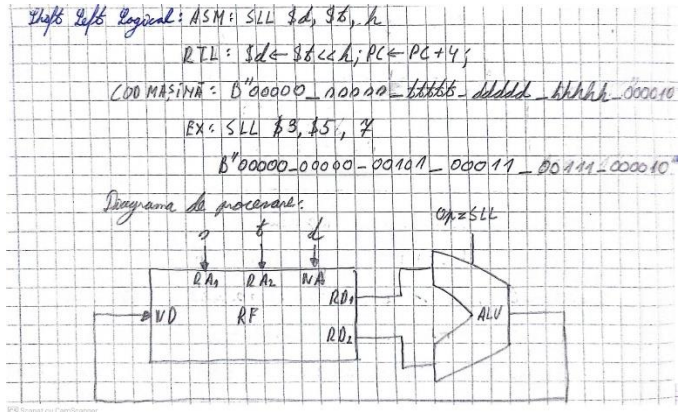 Shift Left Logical: ASM: SLL $d, $t, h
RTL: $d ← $t << h; PC ← PC + 4;
COD MASINĂ: B"00000_sssss_ttttt_ddddd_hhhhh_000010
EX: SLL $3, $5, 7
B"00000_00000_00101_00011_00111_000010"
Diagrama de procesare:
Op=SLL
s t d
RA1 RA2 WA
RD1
WD RF ALU
RD2
Scanat cu CamScanner